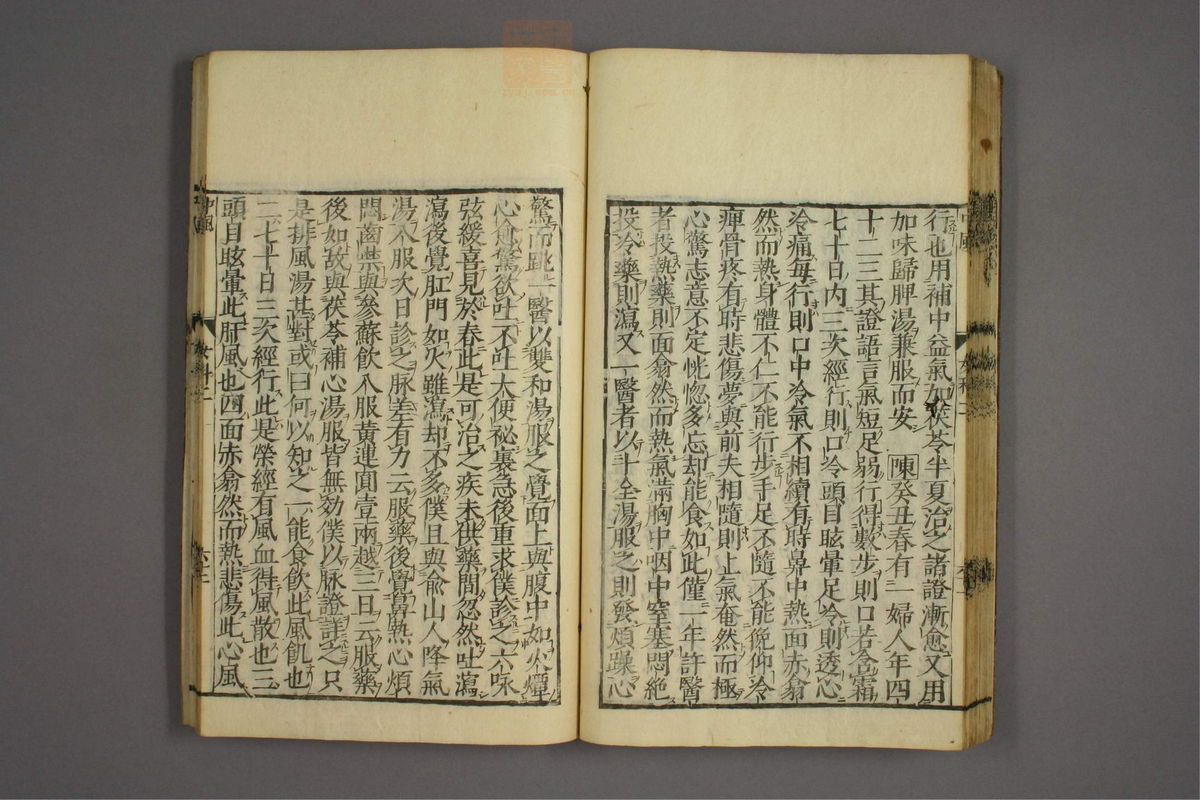 行也用補中益氣加茯苓半夏治之諸證漸愈又用
加味歸脾湯兼服而安 陳 癸丑春有一婦人年四
十二三其證語言氣短足弱行得數步則口若含霜
七十日內三次經行則口冷頭目眩暈足冷則透心
冷痛每行則口中冷氣不相續有時鼻中熱面赤翕
然而熱身體不仁不能行步手足不隨不能俛仰冷
痺骨疼有時悲傷夢與前夫相隨則上氣奄然而極
心驚志意不定恍惚多忘却能食如此僅一年許醫
者投熱藥則面翕然而熱氣滿胸中咽中窒塞悶絕
投冷藥則瀉又一醫者以十全湯服之則發煩躁心
驚而跳一醫以雙和湯服之覺面上與腹中如火燀
心愈驚欲吐不吐大便祕裹急後重求僕診之六脉
弦緩喜見於春此是可治之疾未供藥間忽然吐瀉
瀉後覺肛門如火雖瀉却不多僕且與俞山人降氣
湯八服次日診之脉差有力云服藥後覺鼻熱心煩
悶齒噤與參蘇飲八服黄連圓壹兩越三日云服藥
後如故與茯苓補心湯服皆無効僕以脉證詳之只
是排風湯甚對或曰何以知之一能食飲此風飢也
二七十日三次經行此是榮經有風血得風散也三
頭目眩暈此肝風也四面赤翕然而熱悲傷此心風
中風
女科二